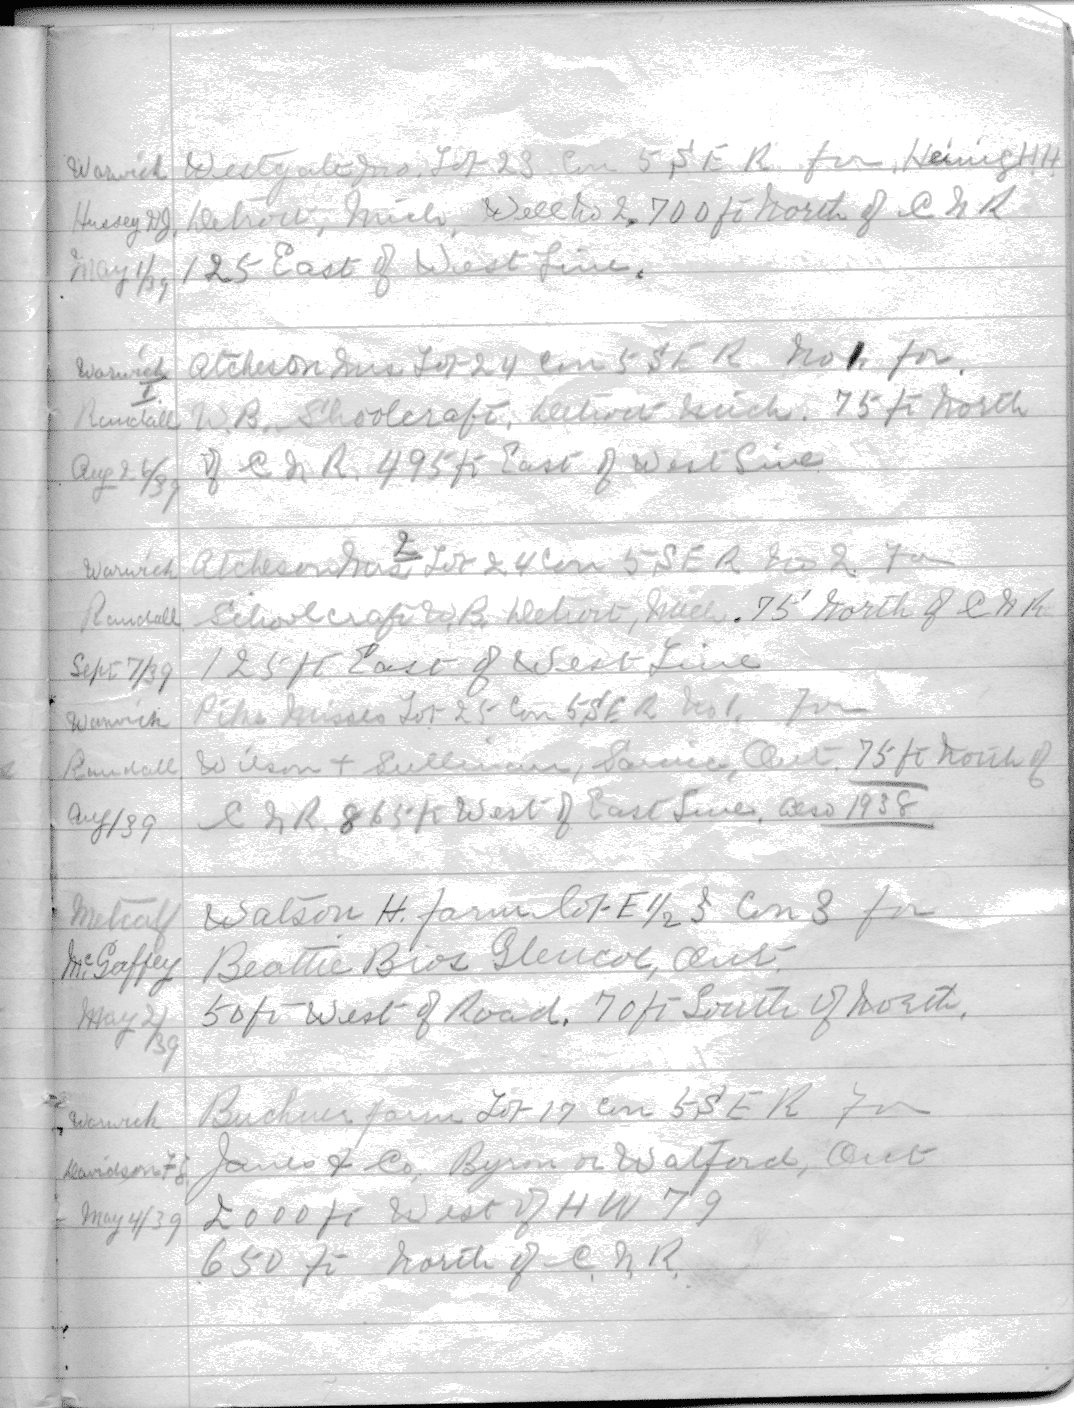 Warwick Westgate Mrs. Lot 23 Con 5 S E R for Heinig H H
Hussey W J. Detroit, Mich, Well No 2. 700 ft North of C N R
May 1/39 125 East of West Line.
Warwick Atcheson Mrs. Lot 24 Con 5 S E R No 1. for
I
Randall W. B. Schoolcraft, Detroit Mich. 75 ft North
Aug 26/39 of C N R. 495 ft East of West Line
2
Warwick Atcheson Mrs, Lot 24 Con 5 S E R No 2 For
Randall Schoolcraft W. B. Detroit, Mich. 75' North of C N R
Sept 7/39 125 ft East of West Line
Warwick Misses Lot 25 Con 5 S E R No 1, For
Randall Wilson + Sullivan, Sarnia, Ont. 75 ft North of
Aug 1/39 C N R. 865 ft West of East Line, also 1938
Metcalf Watson H. farm Lot E 1/2 3 Con 3 for
McGaffey Beattie Bros Glencoe, Ont.
May 2/39 50 ft West of Road. 70 ft South of North.
Warwick farm Lot 17 Con 5 S E R For
Davidson + Co, Byron or Watford, Ont
May 4/39 2000 ft West of H W 79
650 ft North of C. N. R.